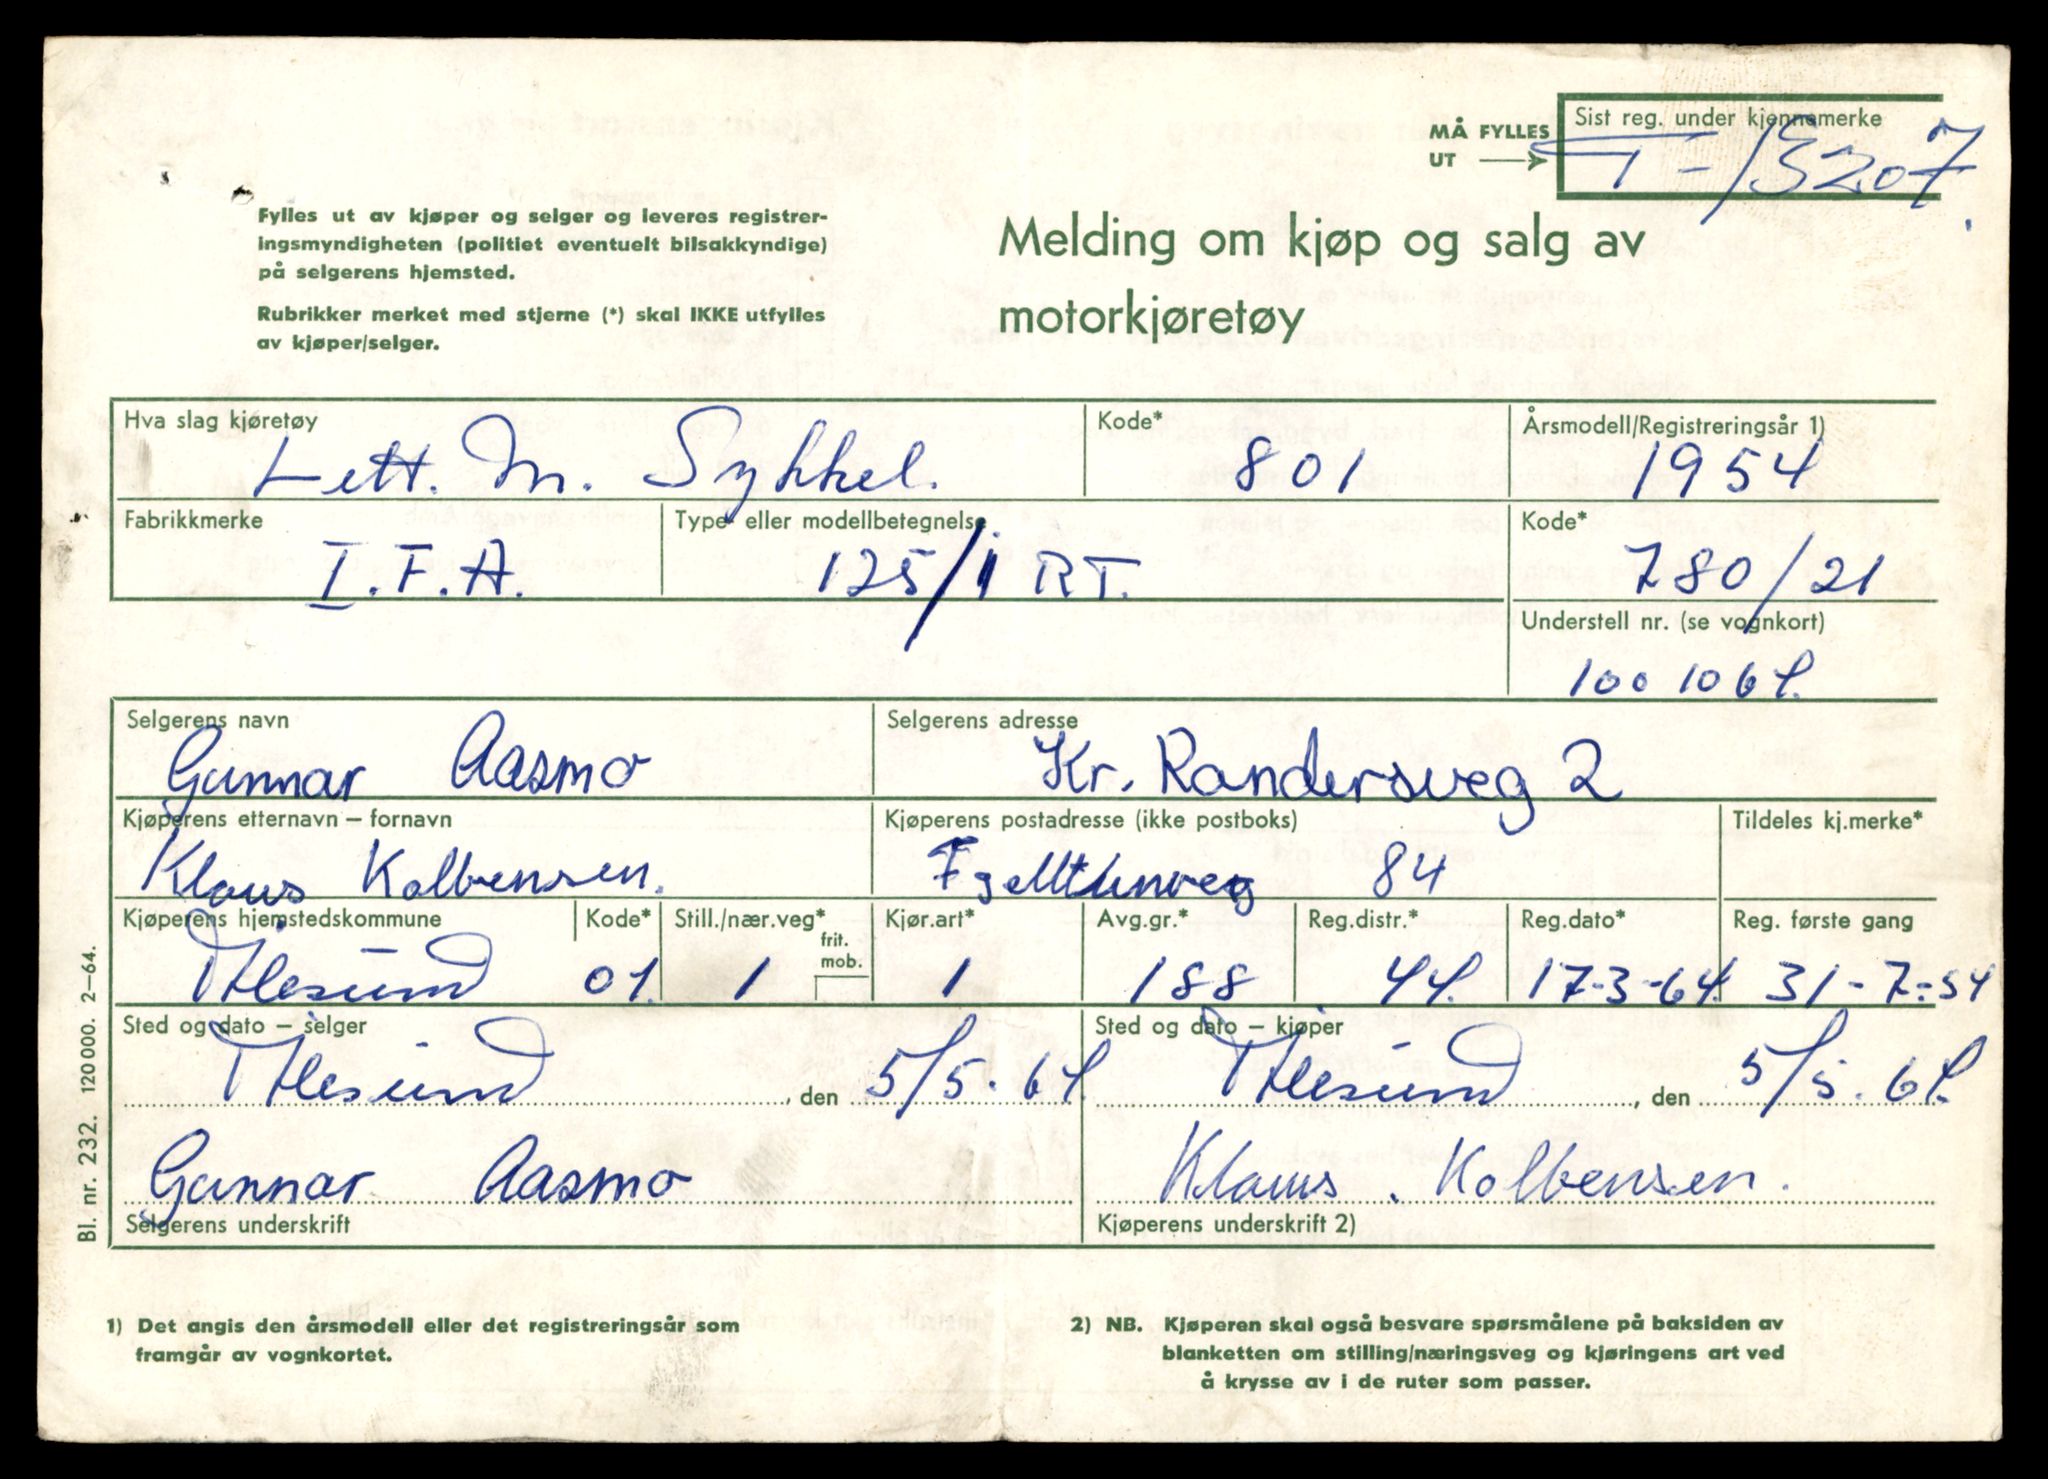 MÅ FYLLES
UT
Sist reg. under kjennemerke
T-13207
Fylles ut av kjøper og selger og leveres registrer-
ingsmyndigheten (politiet eventuelt bilsakkyndige)
på selgerens hjemsted.
Rubrikker merket med stjerne (*) skal IKKE utfylles
av kjøper/selger.
Melding om kjøp og salg av
motorkjøretøy
Hva slag kjøretøy
Lett. M. Sykkel.
Kode*
801
Årsmodell/Registreringsår 1)
1954
Fabrikkmerke
I.F.A.
Type- eller modellbetegnelse
125/1 RT.
Kode*
780/21
Understell nr. (se vognkort)
1001064.
Selgerens navn
Gunnar Aasmo
Selgerens adresse
Kr. Randersveg 2
Kjøperens etternavn – fornavn
Klaus Kolbensen.
Kjøperens postadresse (ikke postboks)
Fjelltunveg 84
Tildeles kj.merke*
Kjøperens hjemstedskommune
Ålesund
Kode*
01.
Still./nær.veg*
1
frit.
mob.
Kjør.art*
1
Avg.gr.*
188
Reg.distr.*
44.
Reg.dato*
17-3-64.
Reg. første gang
31-7-54
Sted og dato – selger
Ålesund, den 5/5.64.
Sted og dato – kjøper
Ålesund, den 5/5.64.
Gunnar Aasmo
Selgerens underskrift
Klaus. Kolbensen.
Kjøperens underskrift 2)
Bl. nr. 232. 120 000. 2–64.
1) Det angis den årsmodell eller det registreringsår som
framgår av vognkortet.
2) NB. Kjøperen skal også besvare spørsmålene på baksiden av
blanketten om stilling/næringsveg og kjøringens art ved
å krysse av i de ruter som passer.